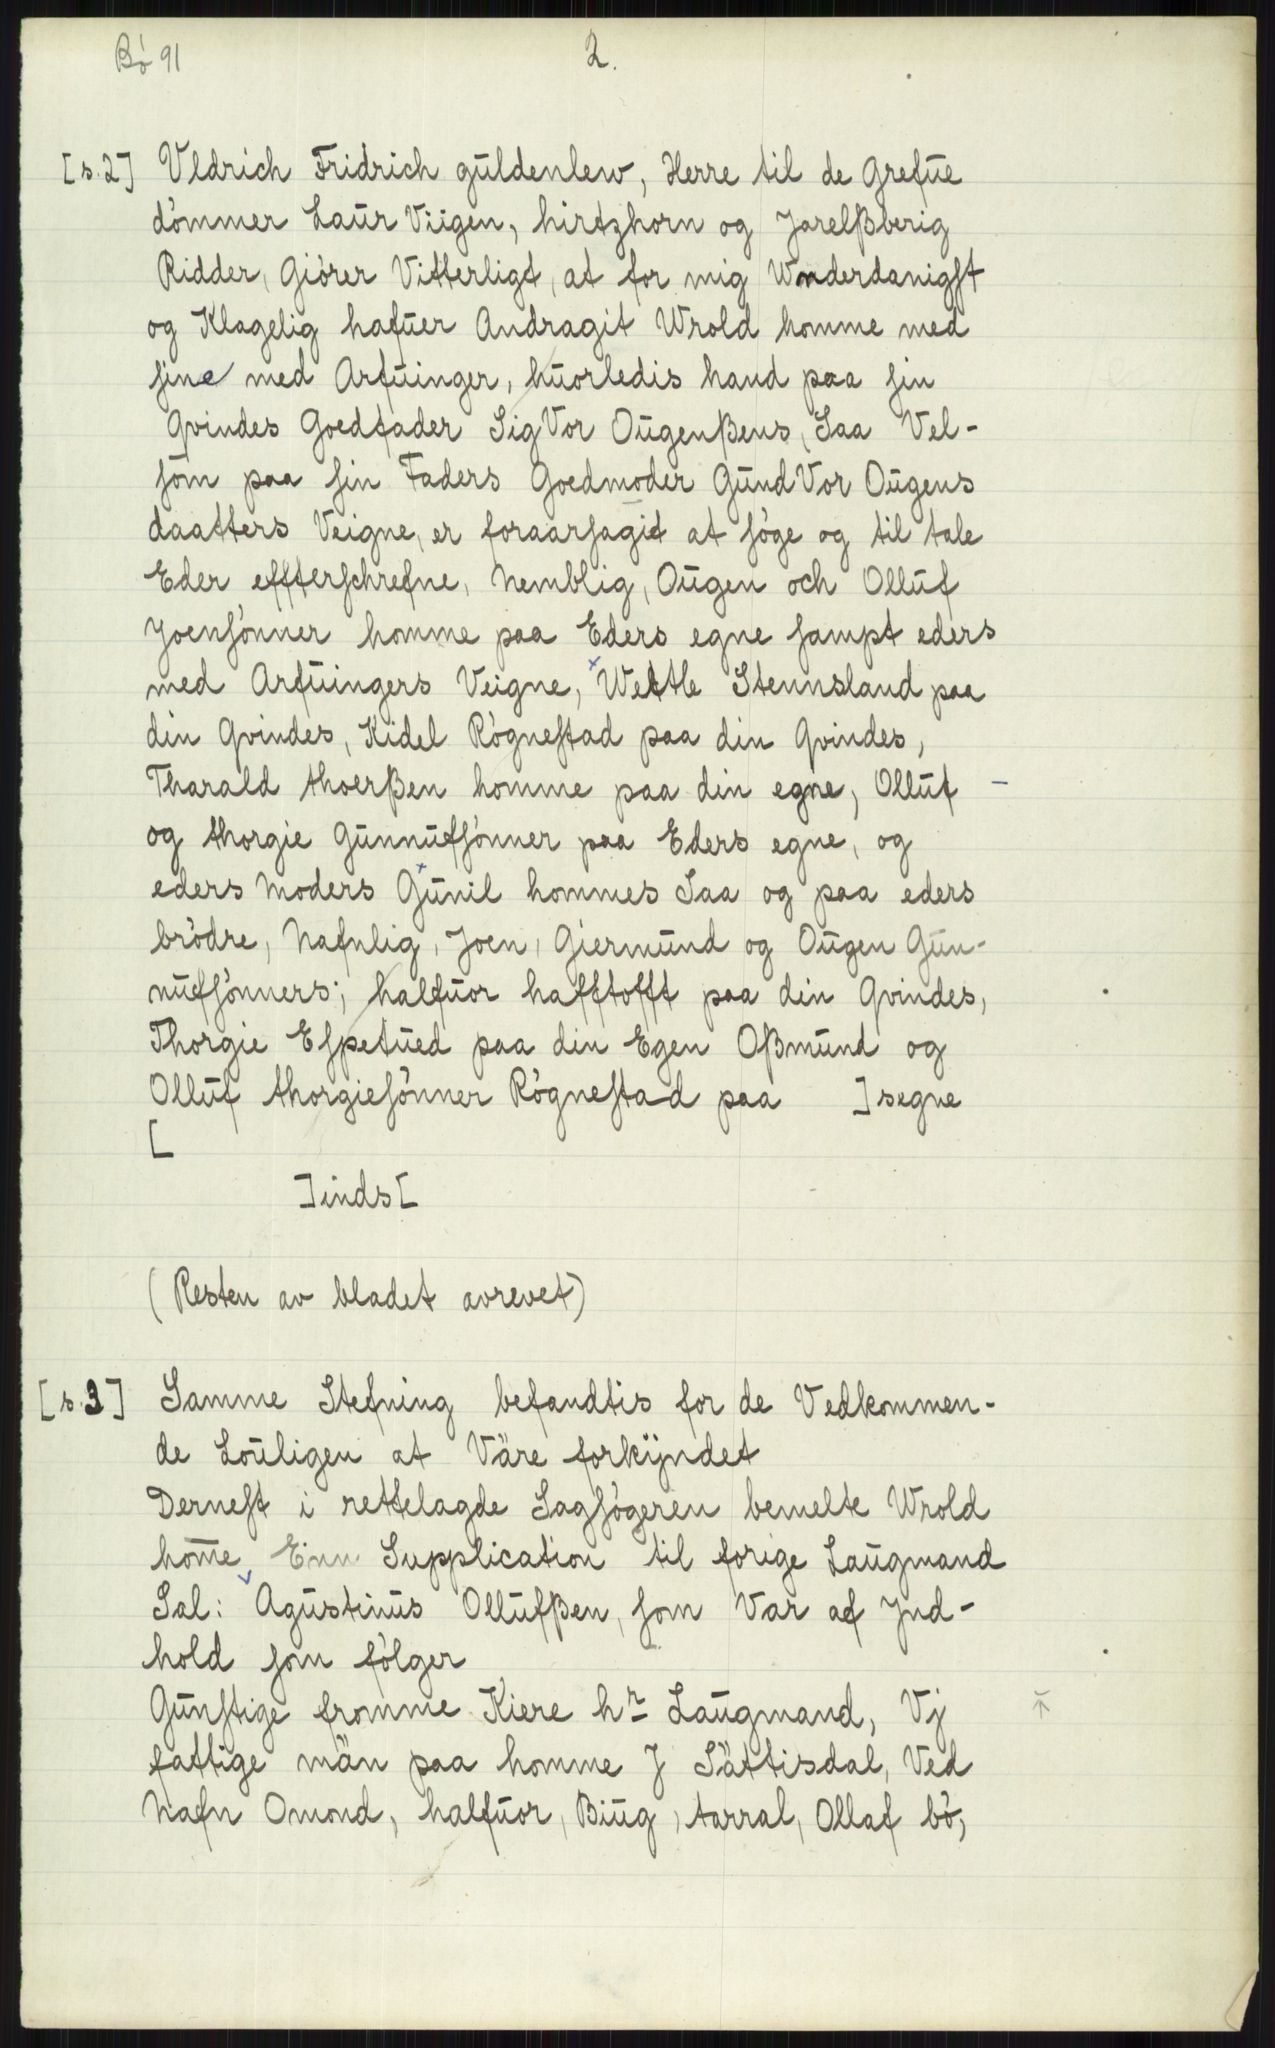 Bó 91
2.
[s.2] Vldrich Fridrich guldenlew, Herre til de Grefue
dómmer Laur Viigen, hirtzhorn og Jarelßberig
Ridder, Giórer Vitterligt, at for mig Wnderdanigst
og Klagelig hafuer Andragit Wrold homme med
sine med Arfuinger, huorledis hand paa sin
Qvindes Goedfader Sig Vor Ougenßens, Saa Vel-
som paa sin Faders Goedmoder Gund Vor Ougens
daatters Veigne, er foraarsagit at sóge og til tale
Eder effterschrefne, Nemblig, Ougen och Olluf
Joensónner homme paa Eders egne sampt eders
med Arfuingers Veigne, Wettle Stennsland paa
din Qvindes, Kidel Rógnestad paa din Qvindes,
Tharald thoerßen homme paa din egne, Olluf -
og thorgie Gunnufsónner paa Eders egne, og
eders Moders Gunil hommes Saa og paa eders
bródre, Nafnlig, Joen, Giermund og Ougen Gun-
nufsónners; halfuor hafftofft paa din Qvindes,
Thorgie Espetued paa din Egen Oßmund og
Olluf thorgiesónner Rógnestad paa ]segne
[
]inds[
(Resten av bladet avrevet)
[s.3] Samme Stefning befandtis for de Vedkommen-
de Louligen at Väre forkÿndet
Dernest i rettelagde Sagsógeren bemelte Wrold
hom̄e Einn Supplication til forige Laugmand
Sal: Agustinus Ollufßen, som Var af Jnd-
hold som fólger
Gunstige fromme Kiere hr Laugmand, Vj
fattige män paa homme J Sättisdal, Ved
Nafn Omond, halfuor, Biug, tarral, Ollaf bó,